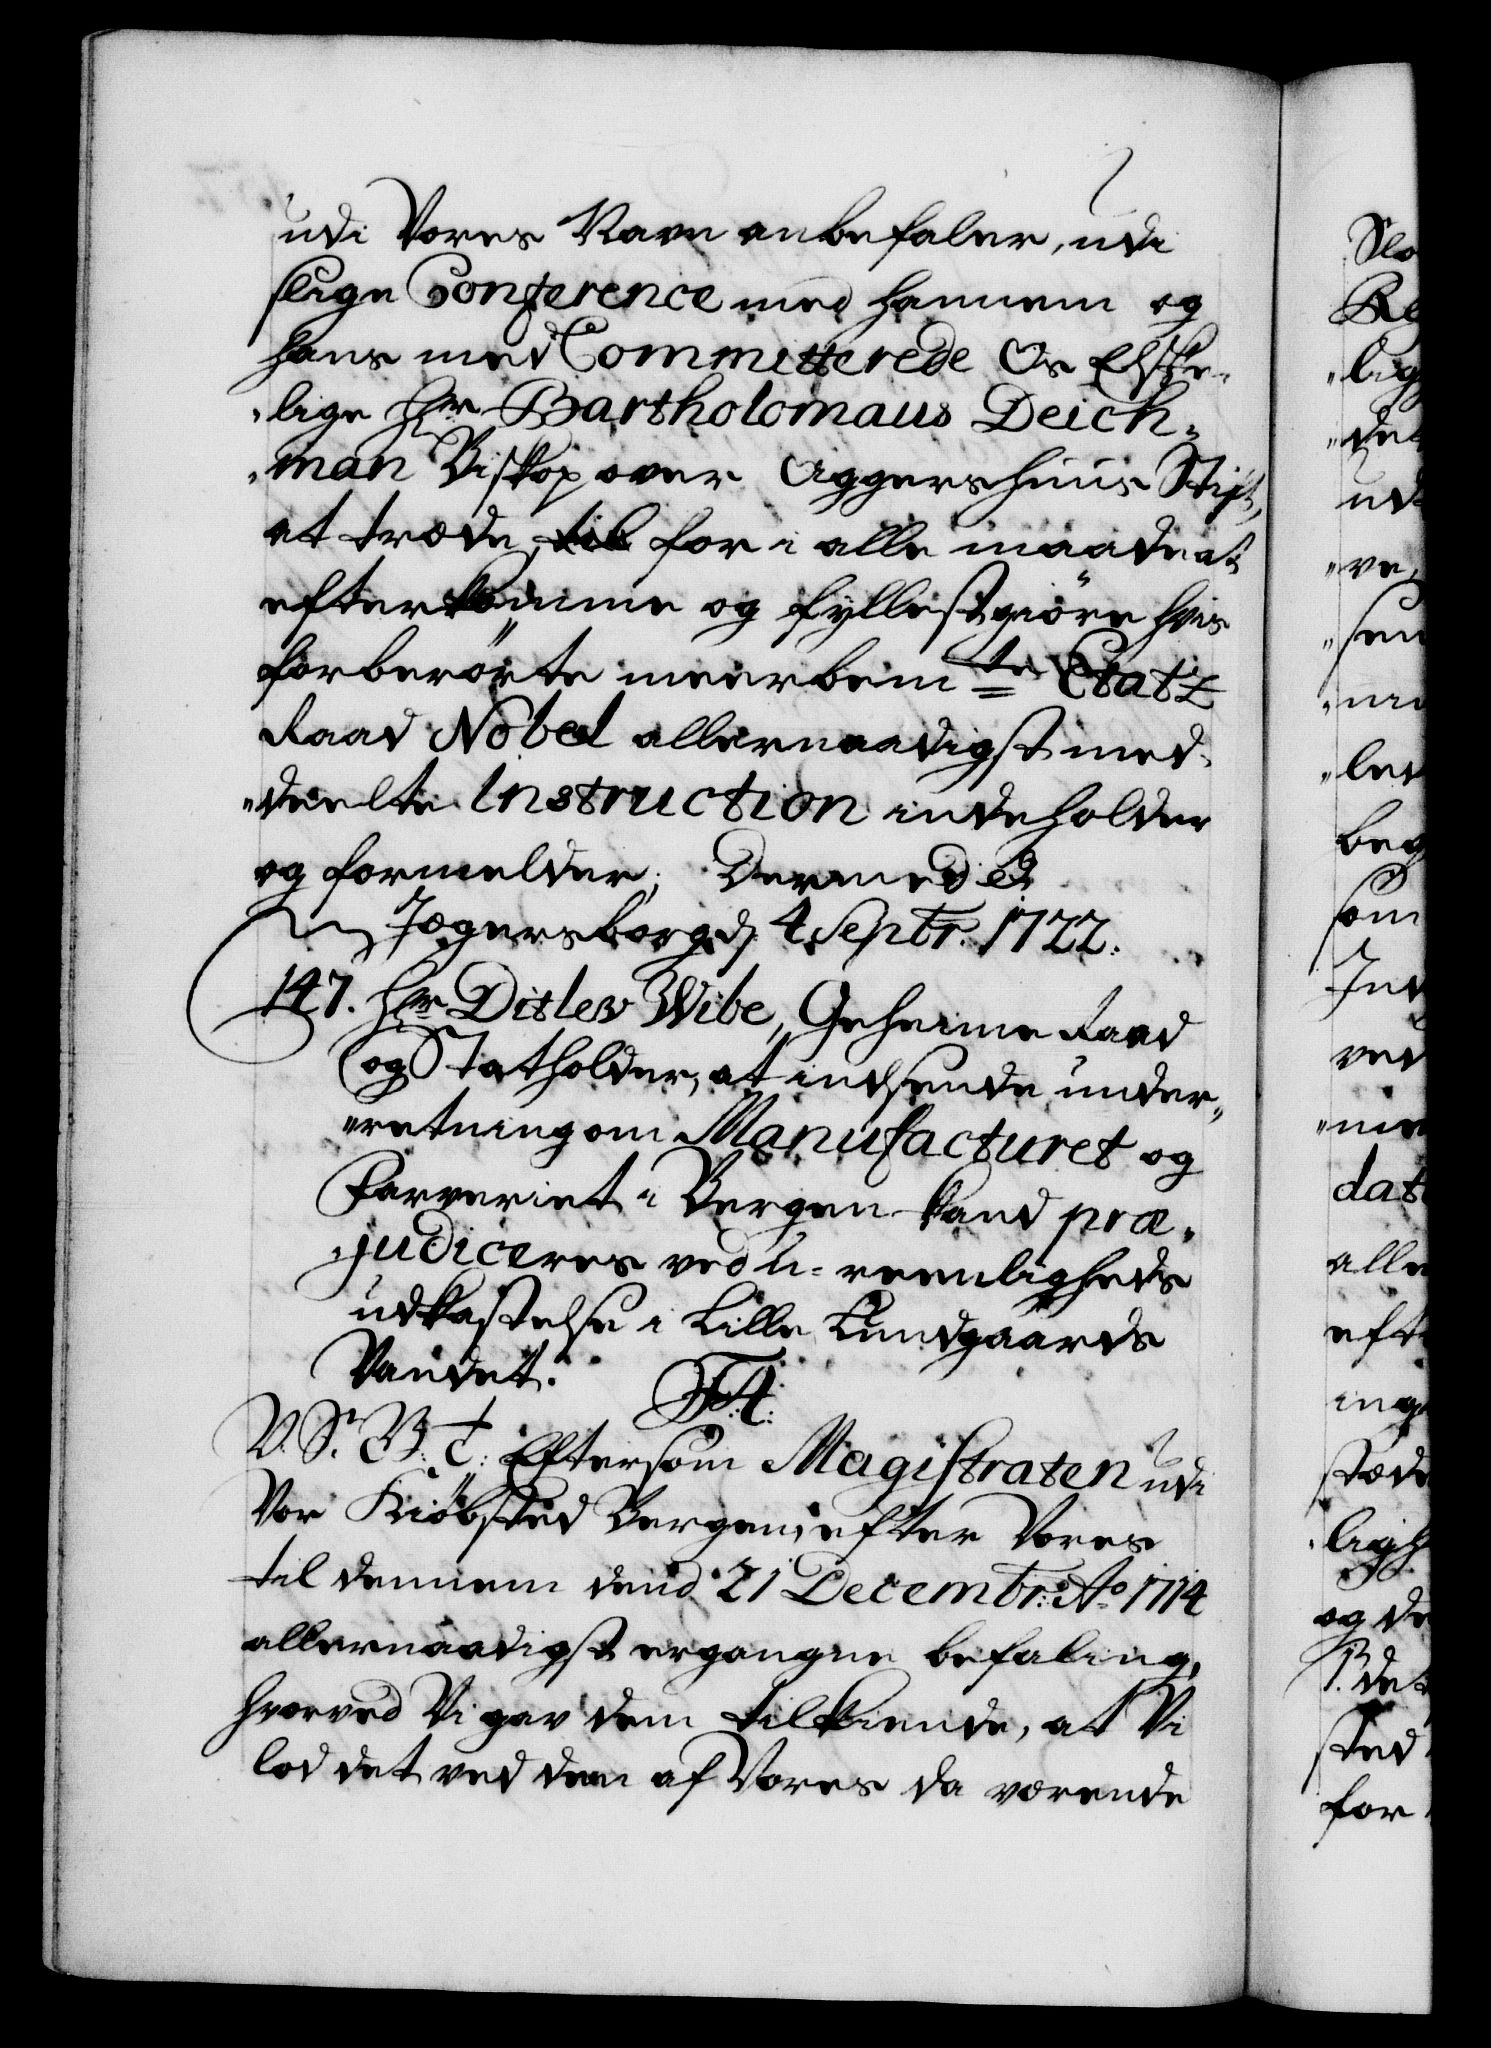 udi Vores Navn anbefaler, udi
slige Conference med hannem og
hans med Committerede Os Elske-
"lige Hr Bartholomæus Deich-
"man Biskop over Aggershuus Stift,
at træde, til for i alle maade at
efterkomme og fyllestgiöre hvis
forberörte meerbemte Etatz
Raad Nobel allernaadigst med-
"deelte Instruction indeholder
og formelder; Dermed &
Jægersborg d. 4 Septr. 1722.
147. Hr Ditlev Wibe, Geheime Raad
og Statholder, at indsende under-
"retning om Manufacturet og
Farveriet i Bergen kand præ-
"judiceres ved U-reenligheds
udkastelse i Lille Lundgaards
Vandet. F4.
V. S. B. T: Eftersom Magistraten udi
Vor Kiöbsted Bergen, efter Vores
til dennem dend 21 Decembr: Ao 1714
allernaadigst ergangne befaling,
hvorved Vi gav dem tilkiende, at Vi
lod det ved den af Vores da værende